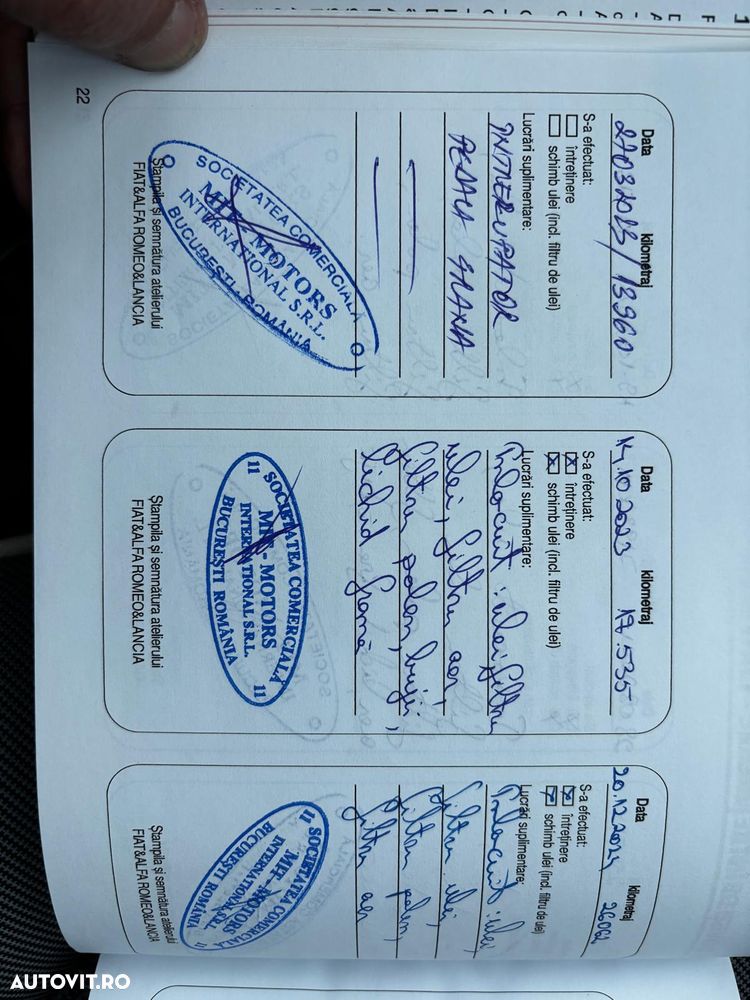 22
Data kilometraj
27032023/13960
S-a efectuat:
întreținere
schimb ulei (incl. filtru de ulei)
Lucrări suplimentare:
INTRERUPATOR
PEDALA FRANA
SOCIETATEA COMERCIALA
MOTORS
INTERNATIONAL S.R.L.
BUCUREȘTI ROMÂNIA
Ștampila și semnătura atelierului
FIAT&ALFA ROMEO&LANCIA
Data kilometraj
14.10.2023 17.535
S-a efectuat:
întreținere
schimb ulei (incl. filtru de ulei)
Lucrări suplimentare:
Inlocuit: ulei, filtru
ulei, filtru aer,
filtru polen, bujii,
lichid frană
11 SOCIETATEA COMERCIALĂ 11
MOTORS
INTERNAȚIONAL S.R.L.
BUCUREȘTI ROMÂNIA
Ștampila și semnătura atelierului
FIAT&ALFA ROMEO&LANCIA
Data kilometraj
20.12.2024 26062
S-a efectuat:
întreținere
schimb ulei (incl. filtru de ulei)
Lucrări suplimentare:
Inlocuit: ulei,
filtru ulei,
filtru polen,
filtru aer
11 SOCIETATEA COMERCIALĂ 11
MOTORS
INTERNAȚIONAL S.R.L.
BUCUREȘTI ROMÂNIA
Ștampila și semnătura atelierului
FIAT&ALFA ROMEO&LANCIA
AUTOVIT.RO